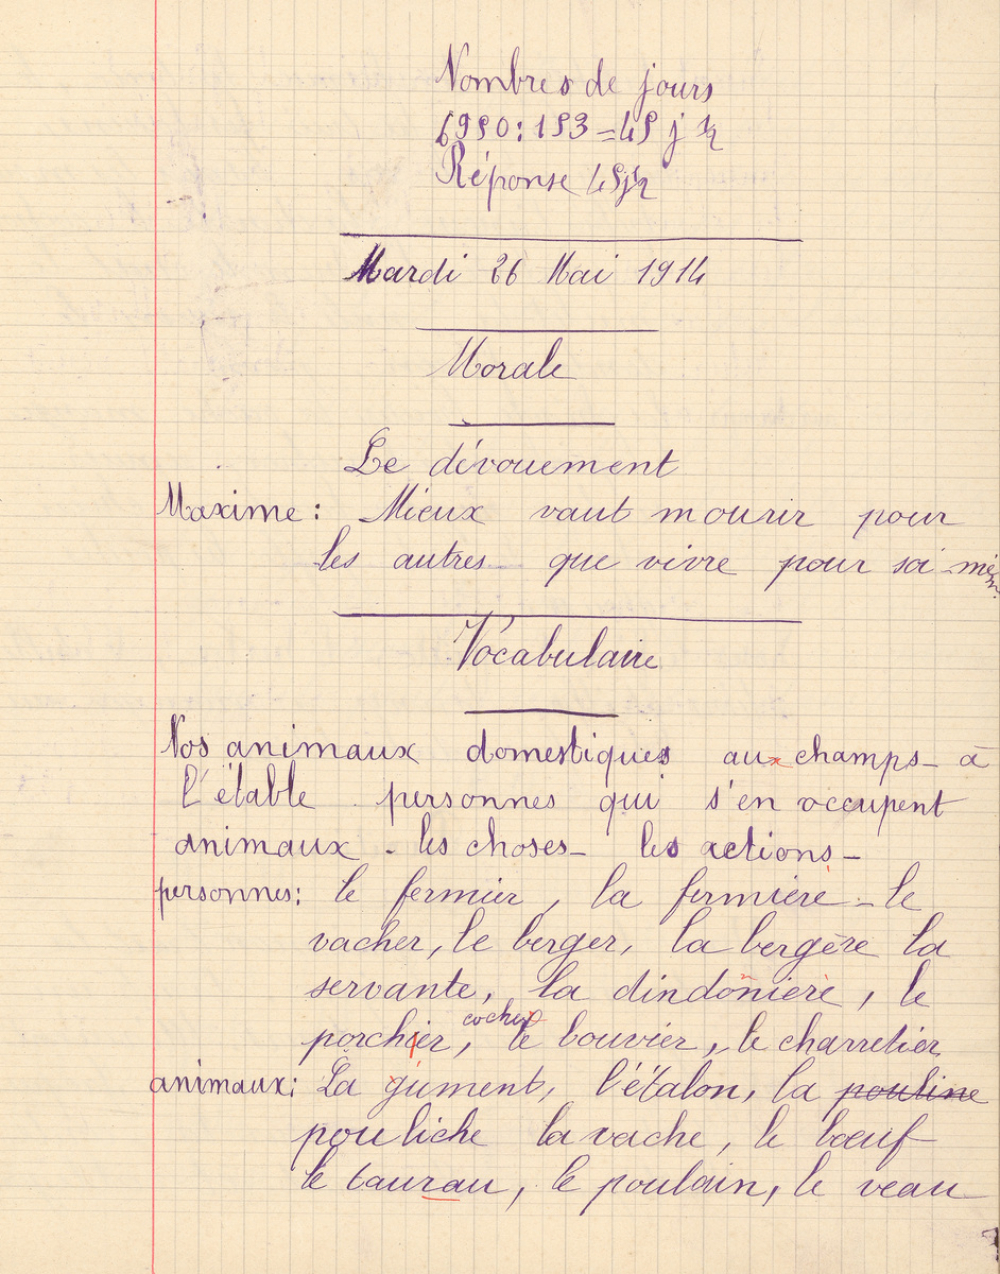 Nombres de jours
6990:153 = 45 j ½
Réponse 45j½
Mardi 26 Mai 1914
Morale
Le dévouement
Maxime : Mieux vaut mourir pour
les autres que vivre pour soi-mêm
Vocabulaire
Nos animaux domestiques aux champs - à
l'étable personnes qui s'en occupent
animaux - les choses - les actions -
personnes: le fermier, la fermière - le
vacher, le berger, la bergère la
servante, la dindonière, le
cocher
porchier, le bouvier, le charretier
animaux: La jument, l'étalon, la pouline
pouliche la vache, le bœuf
le taurau, le poulain, le veau